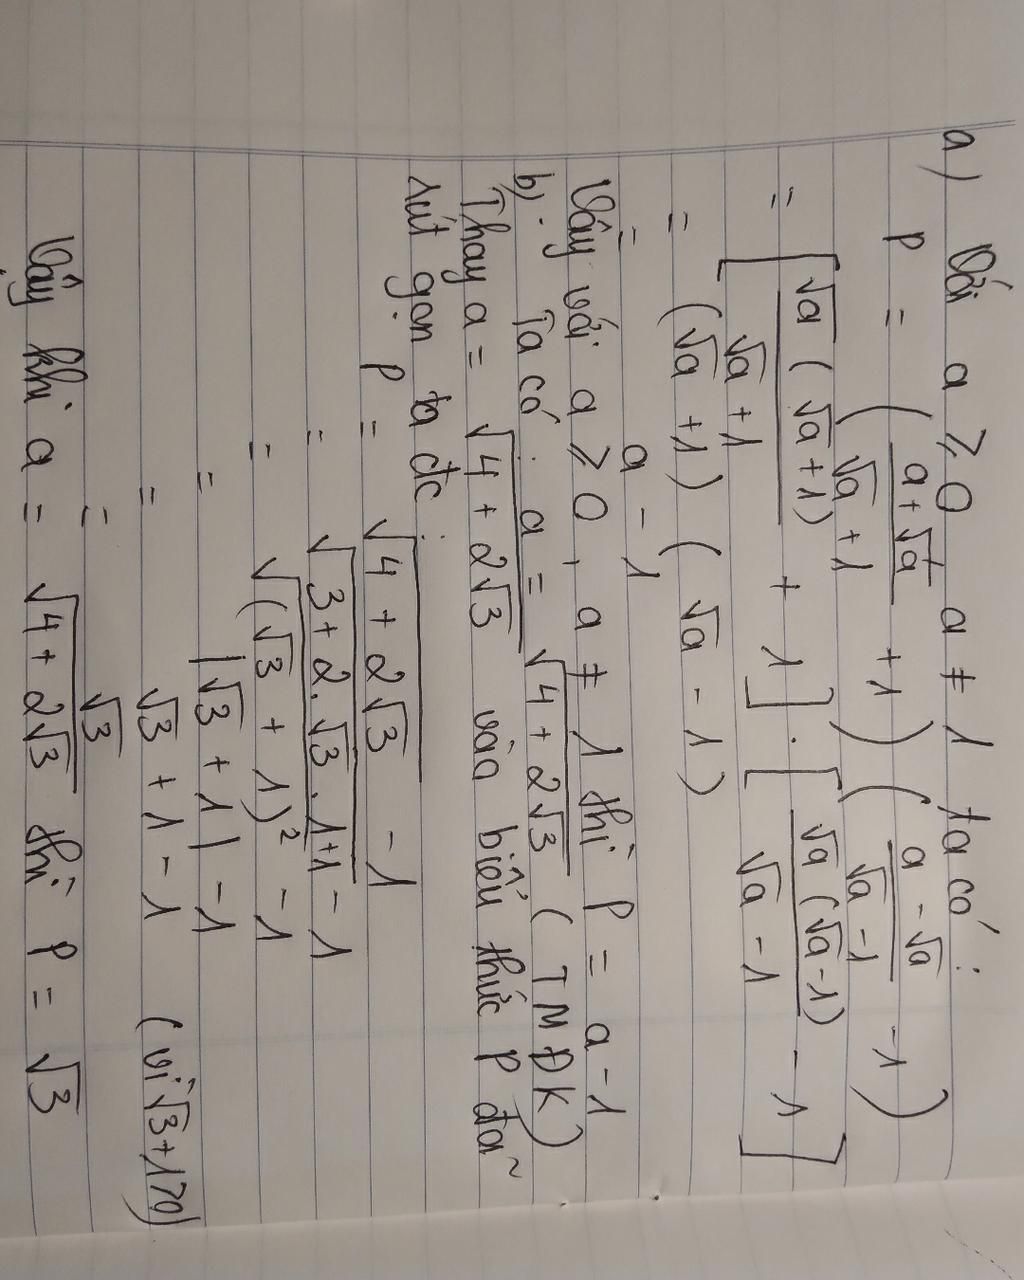 a) Với a ≥ 0, a ≠ 1 ta có:
P = ( (a+√a)/(√a+1) + 1 ) ( (a-√a)/(√a-1) - 1 )
= [ √a(√a+1)/(√a+1) + 1 ] . [ √a(√a-1)/(√a-1) - 1 ]
= (√a + 1) (√a - 1)
= a - 1
Vậy với a ≥ 0, a ≠ 1 thì P = a - 1
b). Ta có: a = √(4 + 2√3) (TMĐK)
Thay a = √(4 + 2√3) vào biểu thức P đã
rút gọn ta đc:
P = √(4 + 2√3) - 1
= √(3 + 2.√3.1+1) - 1
= √((√3 + 1)²) - 1
= |√3 + 1| - 1
= √3 + 1 - 1 (vì √3+1>0)
= √3
Vậy khi a = √(4 + 2√3) thì P = √3